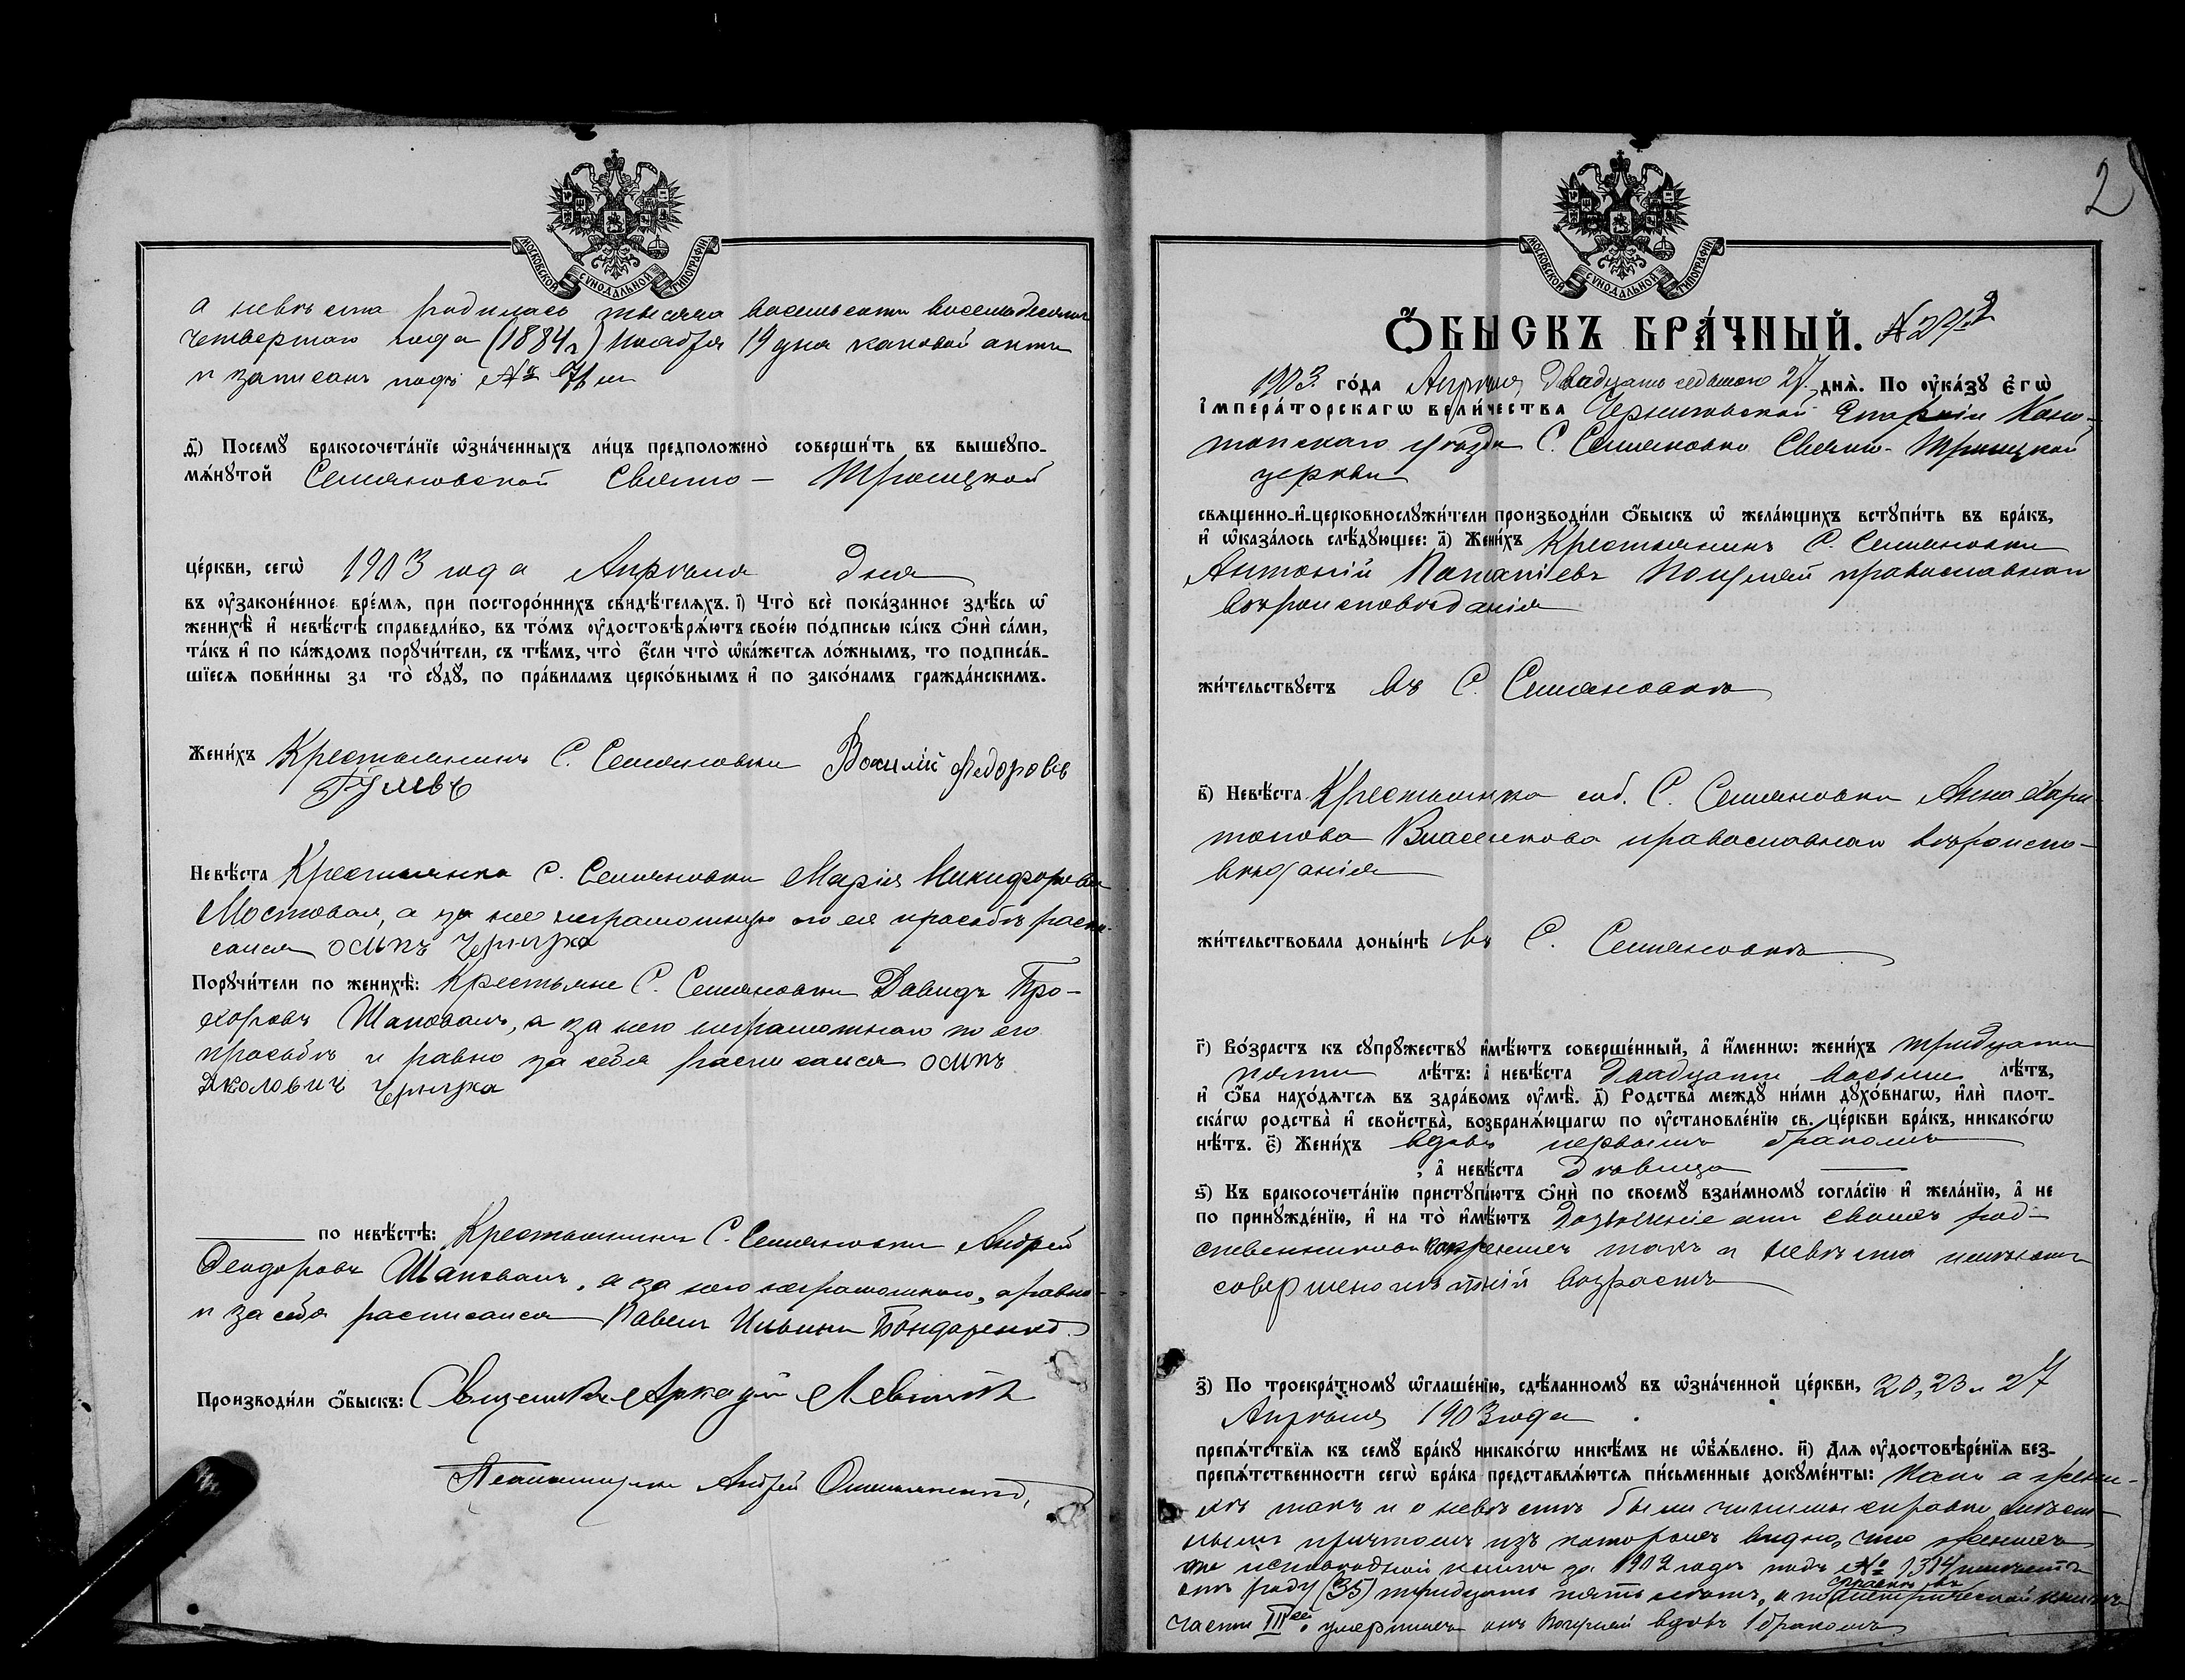 МОСКОВСКОЙ СУНОДАЛЬНОЙ ТИПОГРАФІИ
а невѣста родилась тысяча восемьсотъ восемьдесятъ
четвертаго года (1884 г.) Ноября 14 дня каковой актъ
и записанъ подъ №
д҃) Посемꙋ бракосочета́нїе ѡ҆зна́ченныхъ ли́цъ предположено̀ соверши́ть въ вышеꙋпо-
мѧ́нꙋтой Семяновской Свято - Троицкой
це́ркви, сегѡ̀ 1903 года Апрѣля дня
въ ᲂу҆законе́нное вре́мѧ, при посторо́ннихъ свидѣ́телѧхъ. і҃) Что̀ всѐ пока́занное здѣ́сь ѡ҆
женихѣ̀ и҆ невѣ́стѣ справедли́во, въ то́мъ ᲂу҆достовѣрѧ́ютъ свое́ю по́дписью ка́къ ѻ҆нѝ са́ми,
та́къ и҆ по ка́ждомъ порꙋчи́тели, съ тѣ́мъ, что̀ є҆́сли что̀ ѡ҆ка́жетсѧ ло́жнымъ, то подписа́в-
шїесѧ пови́нны за то̀ сꙋдꙋ̀, по пра́виламъ церко́внымъ и҆ по зако́намъ гражда́нскимъ.
Жени́хъ Крестьянинъ С. Семяновки Василій Федоровъ
Гулевъ
Невѣ́ста Крестьянка С. Семяновки Марія Никифорова
Мостовая, а за нее неграмотную по ея просьбѣ распи-
сался осипъ Черпуха
Порꙋчи́тели по женихѣ̀: Крестьяне С. Семяновки Давидъ Про-
хоровъ Шаповалъ, а за него неграмотнаго по его
просьбѣ и равно за себя расписался осипъ
Черпуха
по невѣ́стѣ: Крестьянинъ С. Семяновки Андрей
Феодоровъ Шаповалъ, а за него неграмотнаго, а равно
и за себя расписался Павелъ Ильинъ Бондаренко
Производи́ли ѻ҆́быскъ: Священникъ Аркадій Левитскій
Псаломщикъ Андрей
2
МОСКОВСКОЙ СУНОДАЛЬНОЙ ТИПОГРАФІИ
Ѻ҆́БЫСКЪ БРА́ЧНЫЙ. №
1903 го́да Апрѣля двадцать седьмого 27 днѧ̀. По ᲂу҆ка́зꙋ є҆гѡ̀
і҆мпера́торскагѡ вели́чества Черниговской Епархіи Коно-
топскаго уѣзда С. Семяновки Свято-Троицкой
церкви
свѧщенно-и҆-церковнослꙋжи́тели производи́ли ѻ҆́быскъ ѡ҆ жела́ющихъ встꙋпи́ть въ бра́къ,
и҆ ѡ҆каза́лось слѣ́дꙋющее: а҃) Жени́хъ Крестьянинъ С. Семяновки
Антоній Потапіевъ Поцулей православнаго
вѣроисповѣданія
жи́тельствꙋетъ въ С. Семяновкѣ
в҃) Невѣ́ста Крестьянка соб. С. Семяновки Анна Хари-
тонова Власенкова православнаго вѣроиспо-
вѣданія
жи́тельствовала доны́нѣ въ С. Семяновкѣ
г҃) Во́зрастъ къ сꙋпрꙋ́жествꙋ и҆мѣ́ютъ соверше́нный, а҆ и҆́меннѡ: жени́хъ тридцати
пяти лѣ́тъ: а҆ невѣ́ста двадцати восьми лѣ́тъ,
и҆ ѻ҆́ба нахо́дѧтсѧ въ здра́вомъ ᲂу҆мѣ̀. д҃) Родства̀ междꙋ̀ ни́ми дꙋхо́внагѡ, и҆лѝ плот-
ска́гѡ родства̀ и҆ свойства̀, возбранѧ́ющагѡ по ᲂу҆становле́нїю св. це́ркви бра́къ, никако́гѡ
нѣ́тъ. є҃) Жени́хъ вдовъ первымъ бракомъ
, а҆ невѣ́ста дѣвица
ѕ҃) Къ бракосочета́нїю пристꙋпа́ютъ ѻ҆нѝ по своемꙋ̀ взаи́мномꙋ согла́сїю и҆ жела́нїю, а҆ не
по принꙋжде́нїю, и҆ на то̀ и҆мѣ́ютъ дозволеніе отъ своихъ род-
ственниковъ какъ женихъ такъ и невѣста имѣютъ
совершеннолѣтній возрастъ
з҃) По троекра́тномꙋ ѡ҆глаше́нїю, сдѣ́ланномꙋ въ ѡ҆зна́ченной це́ркви, 20, 23 и 27
Апрѣля 1903 года
препѧ́тствїѧ къ семꙋ̀ бра́кꙋ никако́гѡ никѣ́мъ не ѡ҆бъѧ́влено. и҃) Длѧ ᲂу҆достовѣре́нїѧ без-
препѧ́тственности сегѡ̀ бра́ка представлѧ́ютсѧ пи́сьменные докꙋме́нты: Какъ о жени-
хѣ такъ и о невѣстѣ были чинимы справки мѣст-
нымъ причтомъ изъ которыхъ видно, что женихъ
по исповѣдной книгѣ за 1902 годъ подъ № 1314
отъ роду (35) тридцать пять лѣтъ, а по метрической книгѣ
части III ей умершихъ онъ Поцулей вдовъ 1 бракомъ